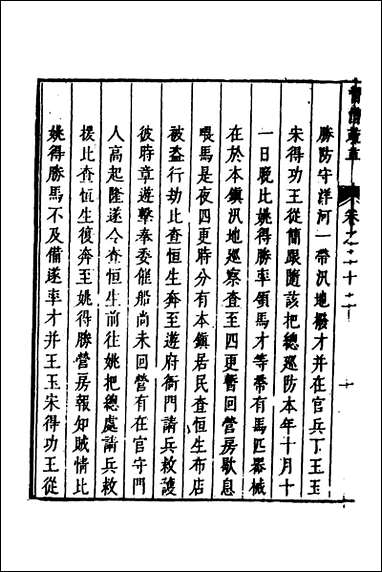 勝防守洋河一帶汛地撥才并在官兵丁王玉
宋得功王從簡跟隨該把總廵防本年十月十
一日晚比姚得勝率領馬才等帶有馬匹器械
在於本鎮汛地廵察查至四更暫回營房歇息
喂馬是夜四更時分有本鎮居民查恒生布店
被盗行劫比查恒生奔至遊府衙門請兵救護
彼時章遊擊奉委催船尚未回營有在官守門
人高起隆遂令查恒生前往姚把總處請兵救
援比查恒生復奔至姚得勝營房報知賊情比
姚得勝馬不及備遂率才并王玉宋得功王從
卷之二十二